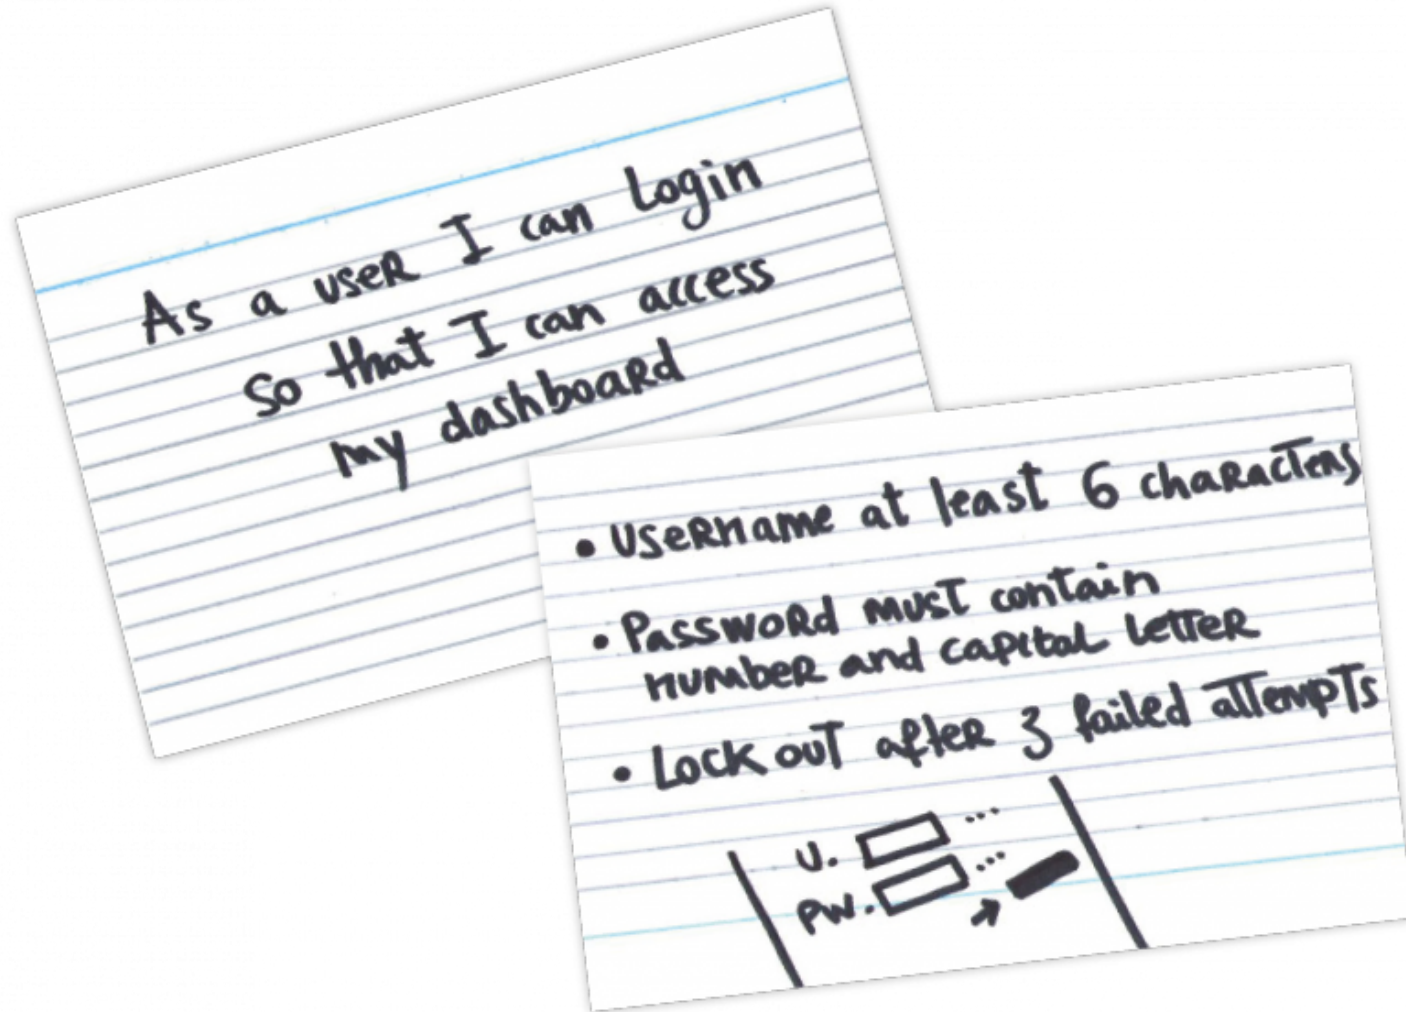 As a user I can Login
So that I can access
my dashboard
• Username at least 6 characters
• Password must contain
number and capital letter
• Lock out after 3 failed attempts
U. ...
PW. ...